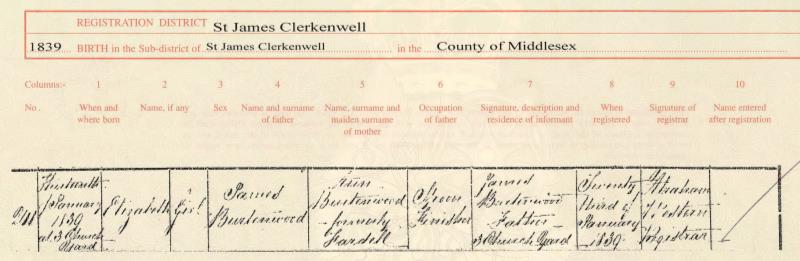 REGISTRATION DISTRICT St James Clerkenwell
1839 BIRTH in the Sub-district of St James Clerkenwell in the County of Middlesex
Columns:- 1 2 3 4 5 6 7 8 9 10
No. When and where born Name, if any Sex Name and surname of father Name, surname and maiden surname of mother Occupation of father Signature, description and residence of informant When registered Signature of registrar Name entered after registration
January
1839
at 3 Church
Yard
Elizabeth
Girl
James
Burtenwood
Ann
Burtenwood
formerly
Fardell
Finisher
James
Burtenwood
Father
3 Church Yard
Twenty
third of
January
1839
Abraham
Registrar